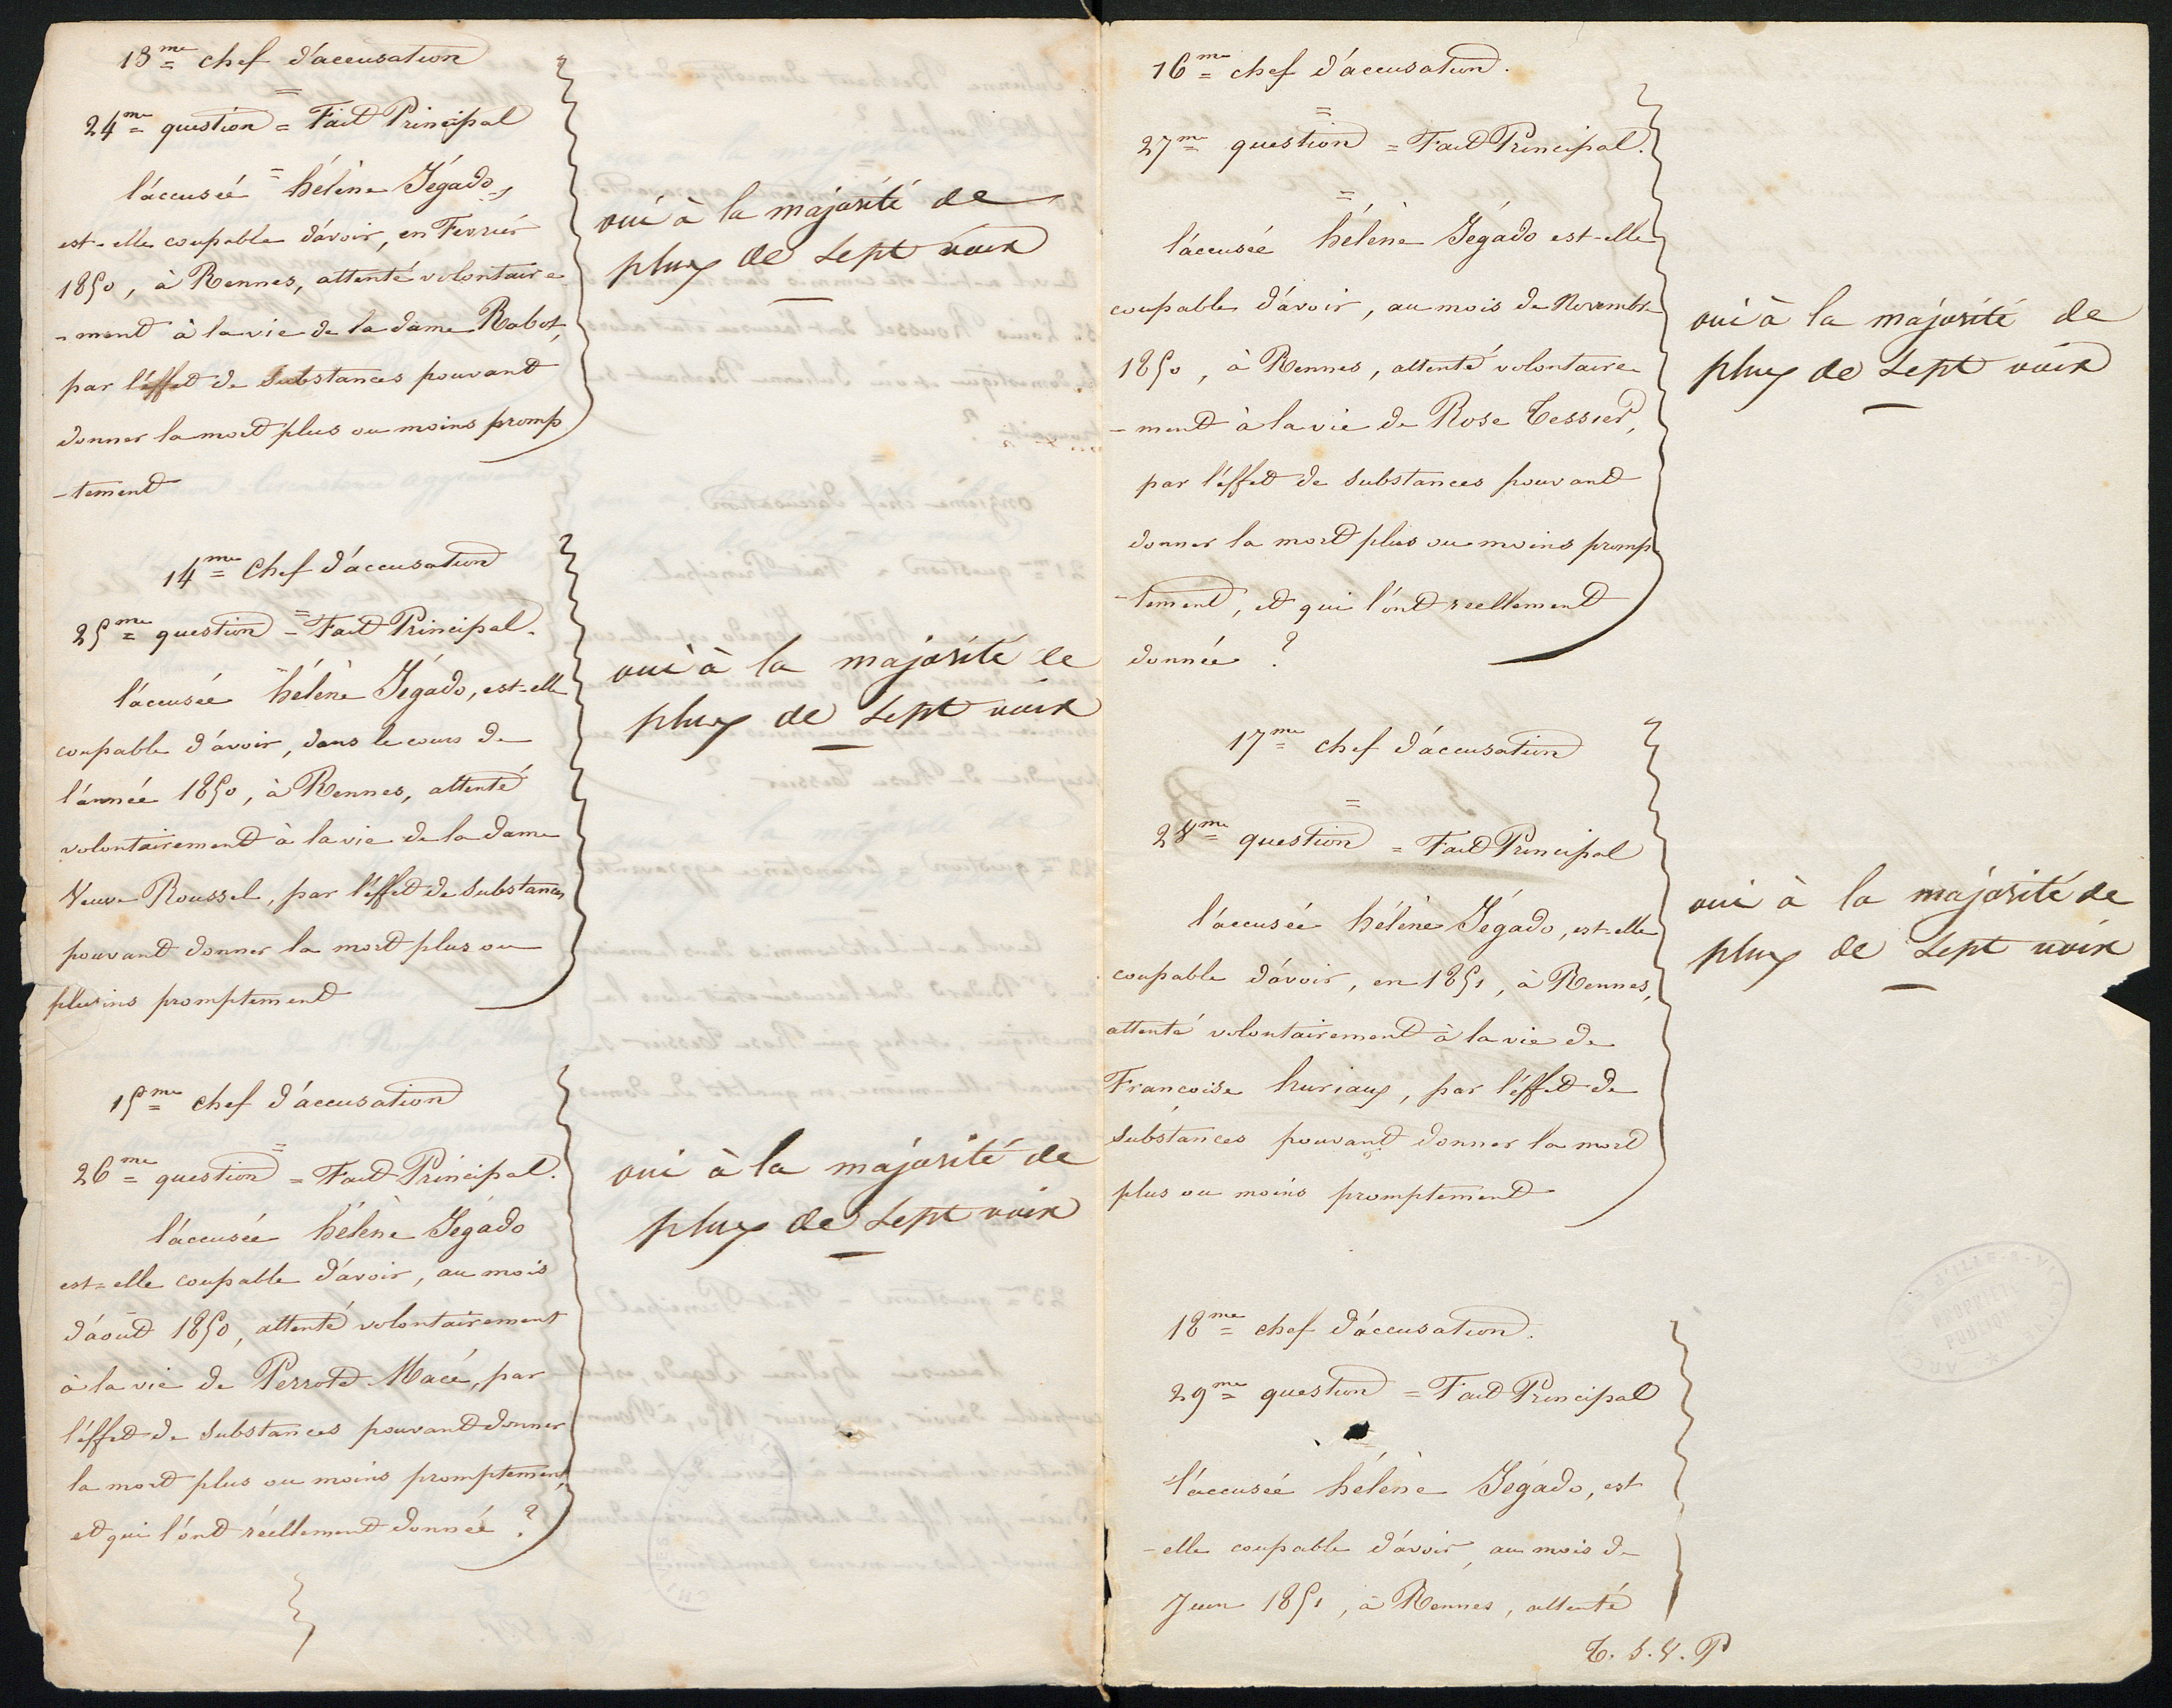 13me chef d'accusation
=
24me question = Fait Principal
=
l'accusée hélène Jégado,
est-elle coupable d'avoir, en Fevrier
1850, à Rennes, attenté volontaire
-ment à la vie de la dame Rabot,
par l'effet de substances pouvant
donner la mort plus ou moins promp
-tement
oui à la majorité de
plus de sept voix
14me Chef d'accusation
=
25me question = Fait Principal.
l'accusée hélène Jégado, est-elle
coupable d'avoir, dans le cours de
l'année 1850, à Rennes, attenté
volontairement à la vie de la dame
Veuve Roussel, par l'effet de substances
pouvant donner la mort plus ou
moins promptement
oui à la majorité de
plus de sept voix
15me chef d'accusation
=
26me question = Fait Principal.
l'accusée hélène Jégado
est-elle coupable d'avoir, au mois
d'août 1850, attenté volontairement
à la vie de Perrote Macé, par
l'effet de substances pouvant donner
la mort plus ou moins promptement,
et qui l'ont réellement donnée ?
oui à la majorité de
plus de sept voix
16me chef d'accusation.
=
27me question = Fait Principal.
=
l'accusée hélène Jégado est-elle
coupable d'avoir, au mois de Novembre
1850, à Rennes, attenté volontaire
-ment à la vie de Rose Tessier,
par l'effet de substances pouvant
donner la mort plus ou moins promp
-tement, et qui l'ont réellement
donnée ?
oui à la majorité de
plus de sept voix
17me chef d'accusation
=
28me question = Fait Principal
l'accusée hélène Jégado, est-elle
coupable d'avoir, en 1851, à Rennes,
attenté volontairement à la vie de
Francoise huriaux, par l'effet de
substances pouvant donner la mort
plus ou moins promptement
oui à la majorité de
plus de sept voix
18me chef d'accusation.
29me question = Fait Principal
l'accusée hélène Jégado, est
-elle coupable d'avoir, au mois de
Juin 1851, à Rennes, attenté
T. S. V. P